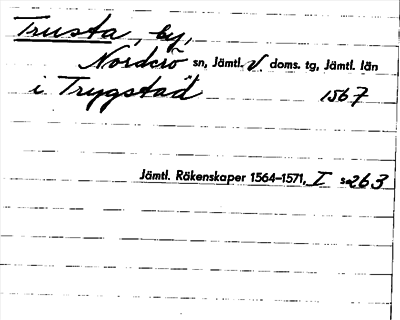 Trusta, by,
Norderö sn, Jämtl. V. doms. tg, Jämtl. län
i Trygstad 1567
Jämtl. Räkenskaper 1564–1571, I s 263